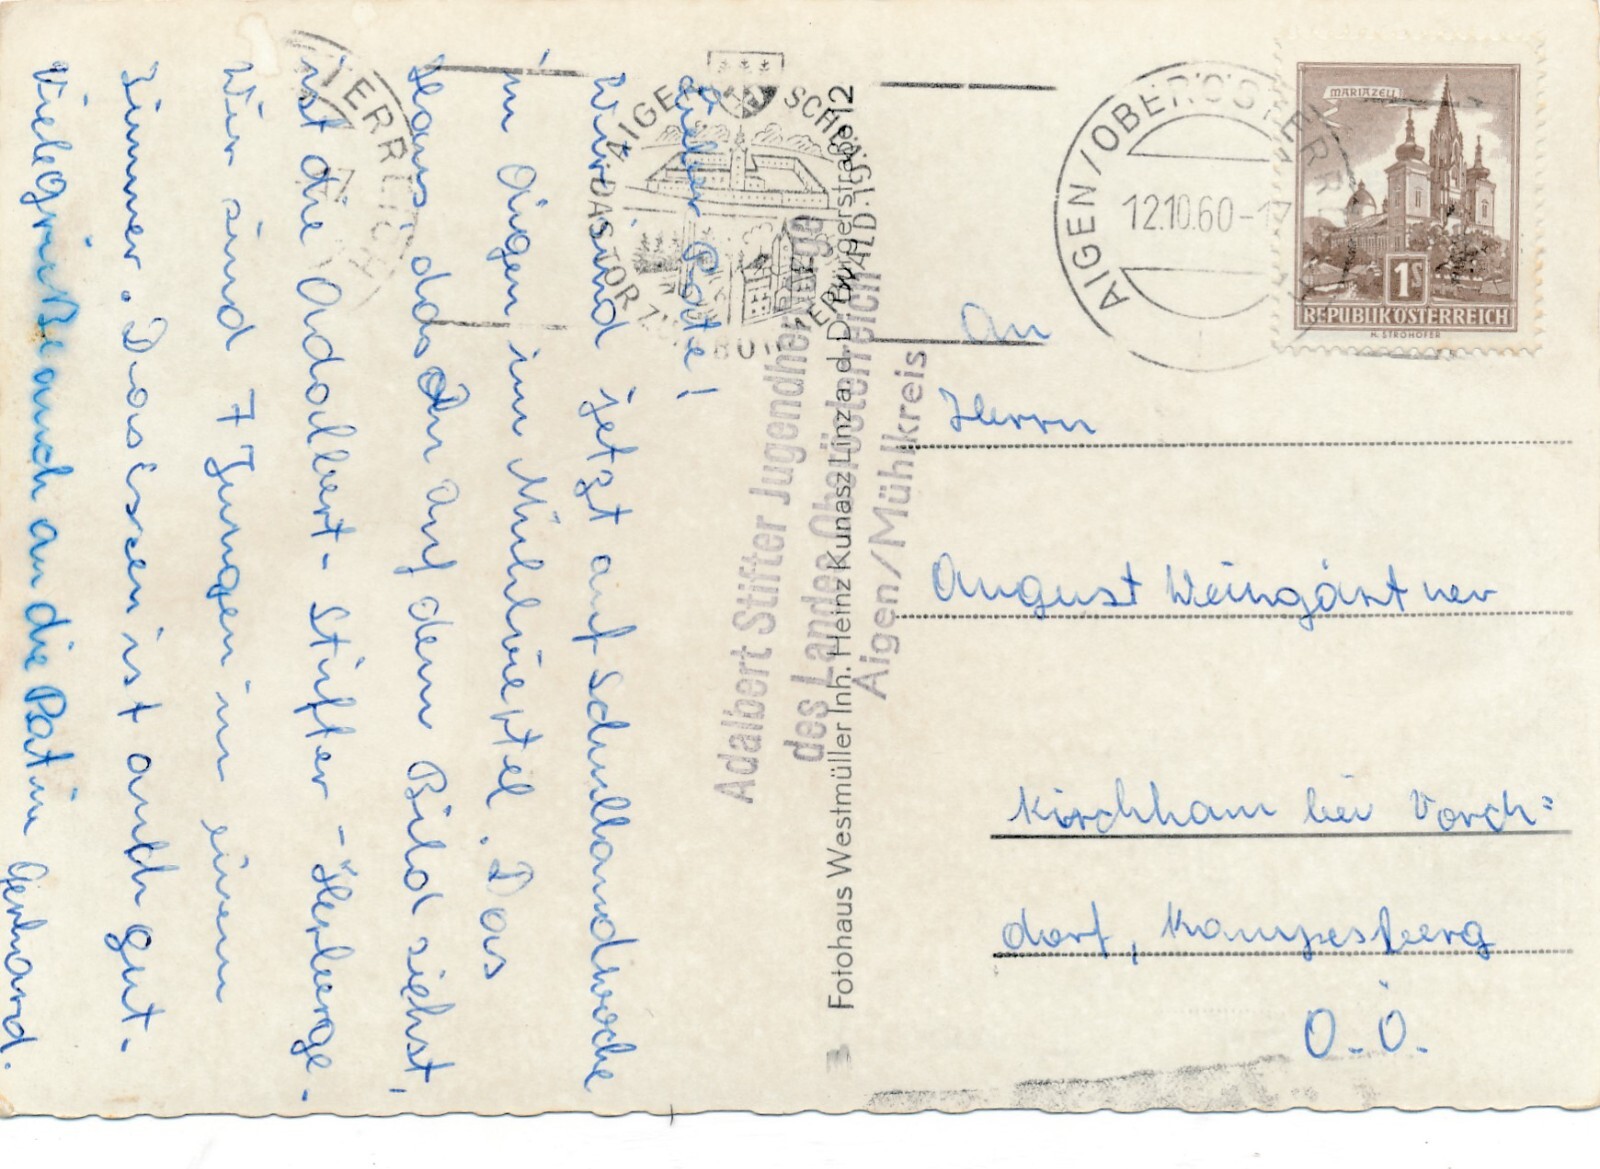 Lieber Pate!
Wir sind jetzt auf Schullandwoche
in Aigen im Mühlviertel. Das
Haus das Du auf dem Bild siehst,
ist die Adalbert-Stifter-Herberge.
Wir sind 7 Jungen in einem
Zimmer. Das Essen ist auch gut.
Viele Grüße auch an die Patin Gerhard.
Adalbert Stifter Jugendherberge
des Landes Oberösterreich
Aigen/Mühlkreis
Fotohaus Westmüller Inh. Heinz Kunasz Linz a. d. D. Bürgerstraße 12
AIGEN/OBERÖSTERR
12.10.60-1
MARIAZELL
1S
REPUBLIK ÖSTERREICH
H. STROHOFER
An
Herrn
August Weingärtner
Kirchham bei Vorch=
dorf, Kampesberg
O.Ö.